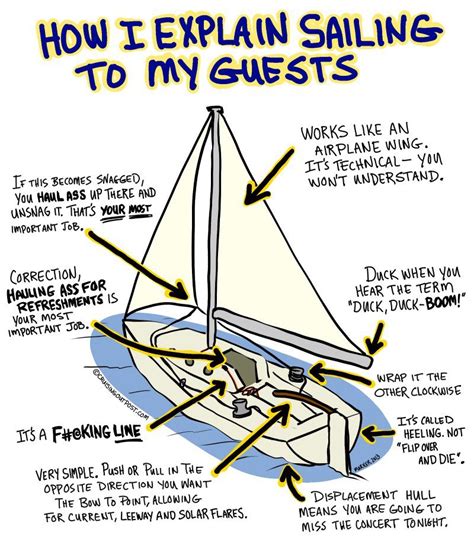 HOW I EXPLAIN SAILING
TO MY GUESTS
WORKS LIKE AN
AIRPLANE WING.
IT'S TECHNICAL— YOU
WON'T UNDERSTAND.
IF THIS BECOMES SNAGGED,
YOU HAUL ASS UP THERE AND
UNSNAG IT. THAT'S YOUR MOST
IMPORTANT JOB.
CORRECTION,
HAULING ASS FOR
REFRESHMENTS IS
YOUR MOST
IMPORTANT JOB.
DUCK WHEN YOU
HEAR THE TERM
"DUCK, DUCK-BOOM!"
WRAP IT THE
OTHER CLOCKWISE
©CRUISINGOUTPOST.COM
IT'S A F#@KING LINE
IT'S CALLED
HEELING. NOT
"FLIP OVER
AND DIE".
VERY SIMPLE. PUSH OR PULL IN THE
OPPOSITE DIRECTION YOU WANT
THE BOW TO POINT, ALLOWING
FOR CURRENT, LEEWAY AND SOLAR FLARES.
DISPLACEMENT HULL
MEANS YOU ARE GOING TO
MISS THE CONCERT TONIGHT.